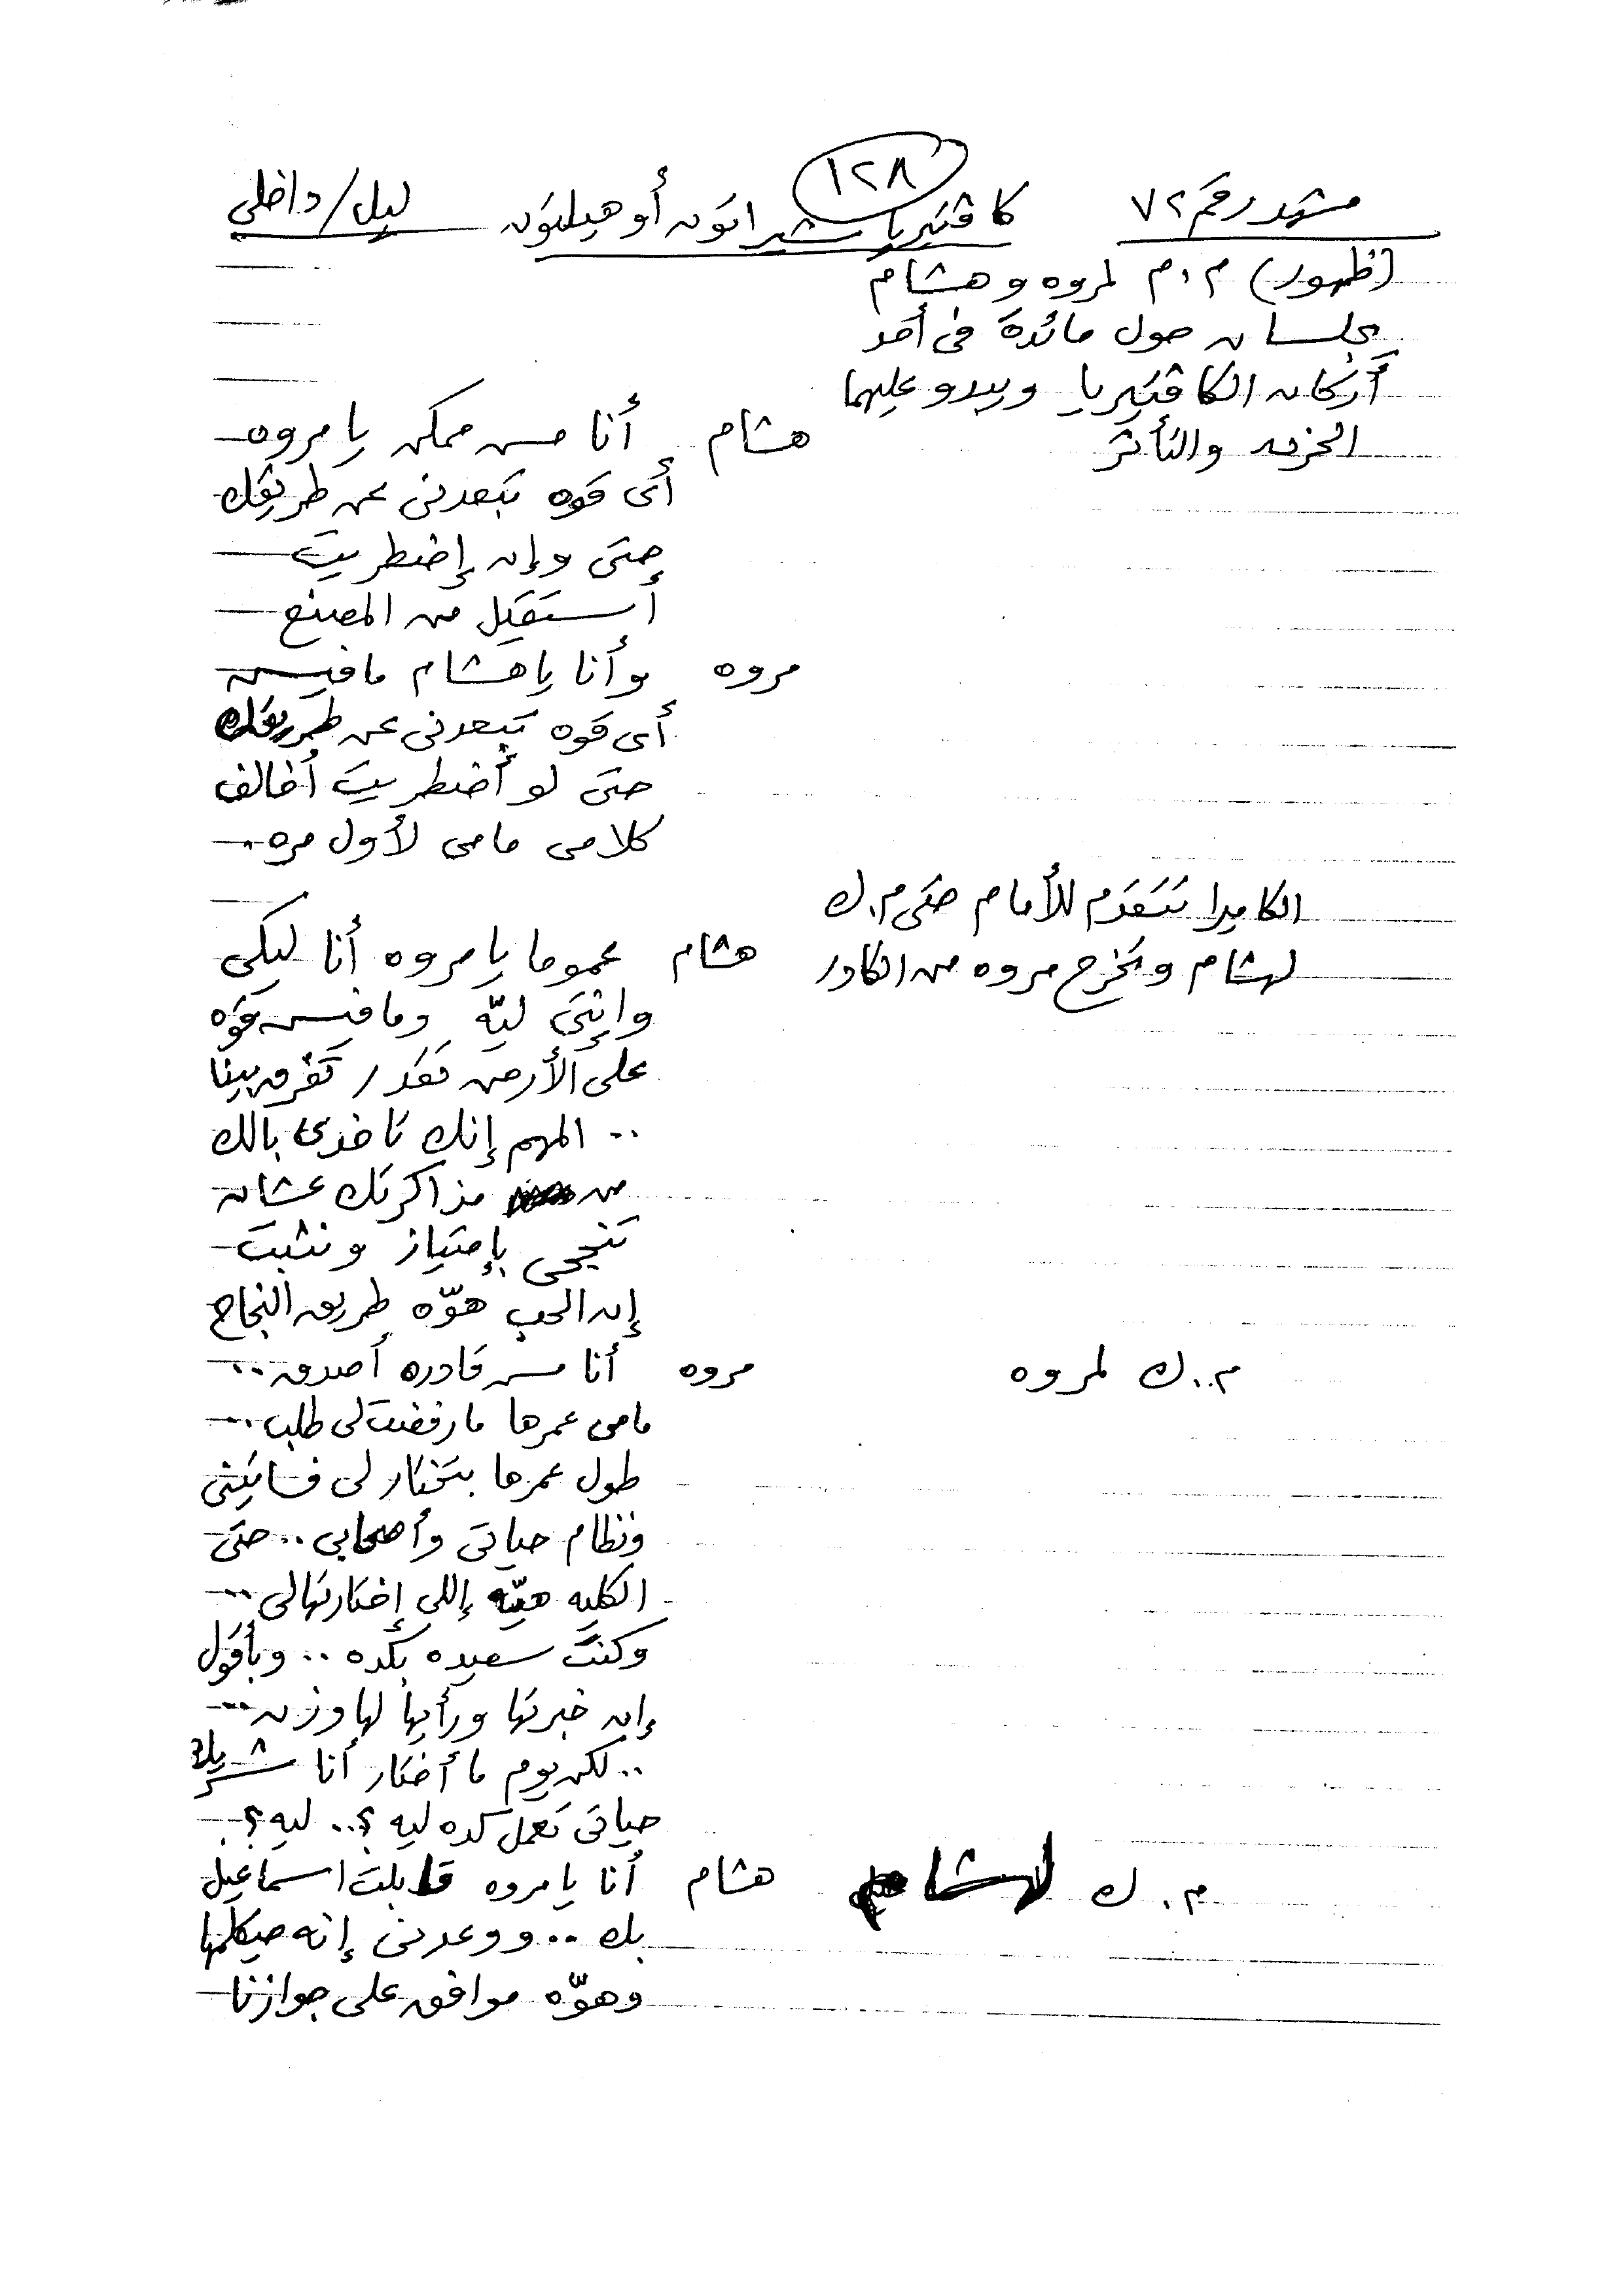 ١٢٨
مشهد رقم ٧٢ كافتيريا شيراتون أو هيلتون ليل/داخلى
(ظهور) م.م لمروه وهشام
يجلسان حول مائدة فى أحد
أركان الكافتيريا ويبدو عليهما
الحزن والتأثر
هشام أنا مش ممكن يا مروه
أى قوه تبعدنى عن طريقك
حتى وإن إضطريت
أستقيل من المصنع
مروه وأنا يا هشام مافيش
أى قوه تبعدنى عن طريقك
حتى لو أضطريت أخالف
كلام مامى لأول مره..
الكاميرا تتقدم للأمام حتى م.ك
لهشام وتخرج مروه من الكادر
هشام عموما يا مروه أنا ليكى
وإنتى ليّه ومافيش قوّه
على الأرض تقدر تفرق بينا
.. المهم إنك تاخدى بالك
من مذاكرتك عشان
تنجحى بإمتياز ونثبت
إن الحب هوّه طريق النجاح
م..ك لمروه
مروه أنا مش قادره أصدق..
مامى عمرها مارفضت لى طلب..
طول عمرها بتختار لى فساتينى
ونظام حياتى وأصحابى.. حتى
الكليه هيّه إللى إختارتهالى..
وكنت سعيده بكده.. وبأقول
إن خبرتها ورأيها لها وزن...
.. لكن يوم ما أختار أنا شريك
حياتى تعمل كده ليه؟.. ليه؟..
م.ك لهشام
هشام أنا يا مروه قابلت اسماعيل
بك.. ووعدنى إنه حيكلمها
وهوّه موافق على جوازنا